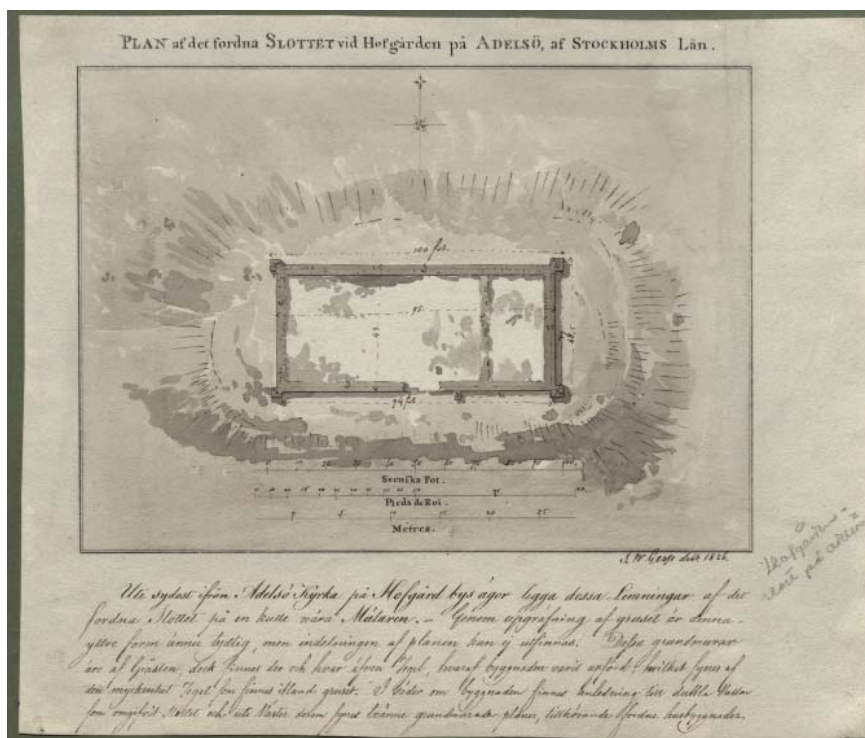 PLAN af det fordna SLOTTET vid Hofgården på ADELSÖ, af STOCKHOLMS Län.
100 fot.
95.
94 fot.
Svenska Fot.
Pieds de Roi.
Metres.
delt 1826.
Hofgården
Ute sydost ifrån Adelsö Kyrka på Hofgård bys ägor ligga dessa Lemningar af det
fordna Slottet på en kulle nära Mälaren. – Genom uppgräfning af gruset är denna
yttre form ännu tydlig, men indelningen af planen kan ej utfinnas. Dess grundmurar
äro af Gråsten, dock finnes der och hvar äfven Tegel, hvaraf byggnaden varit uppförd, hvilket synes af
den myckenhet Tegel som finnes ibland gruset. I Söder om byggnaden finnes anledning till dubbla Vallar
som omgifvit Slottet och ute Vester derom synes tvänne grundmurade planer, tillhörande fordna husbyggnader.